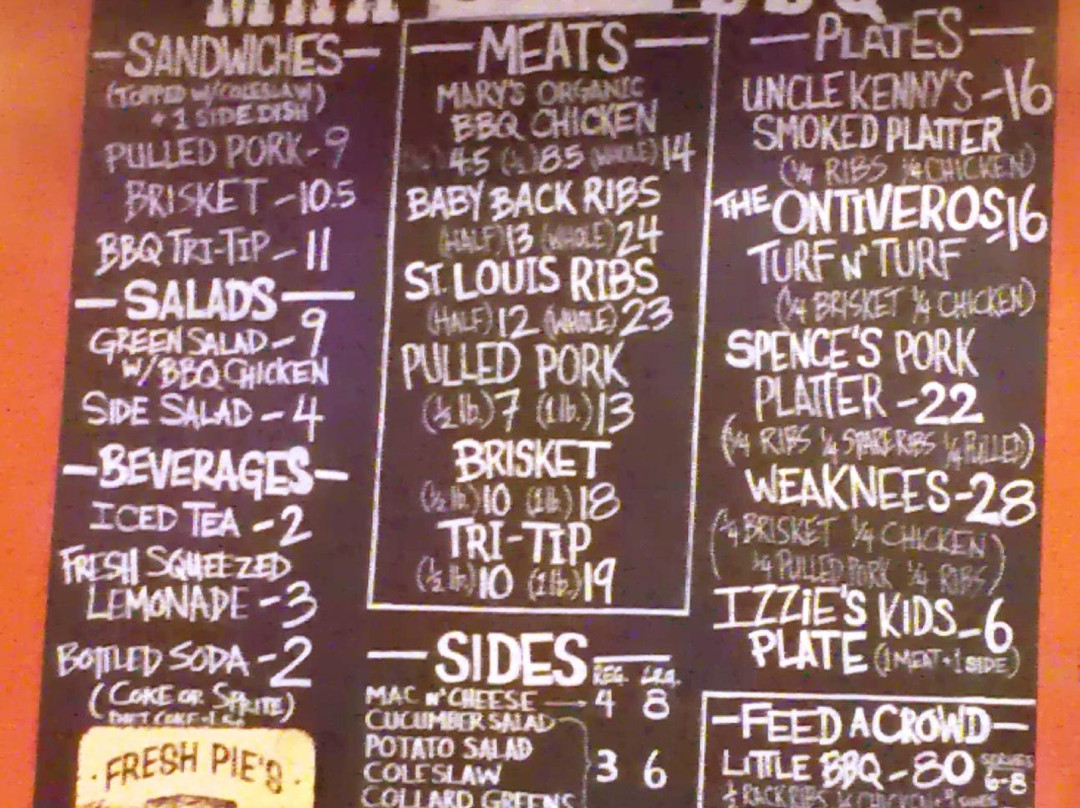 BBQ
—SANDWICHES—
(TOPPED W/COLESLAW)
+ 1 SIDE DISH
PULLED PORK - 9
BRISKET - 10.5
BBQ TRI-TIP - 11
—SALADS—
GREEN SALAD - 9
W/BBQ CHICKEN
SIDE SALAD - 4
—BEVERAGES—
ICED TEA - 2
FRESH SQUEEZED
LEMONADE - 3
BOTTLED SODA - 2
(COKE OR SPRITE)
DIET COKE
· FRESH PIE'S ·
—MEATS—
MARY'S ORGANIC
BBQ CHICKEN
45 (½) 85 (WHOLE) 14
BABY BACK RIBS
(HALF) 13 (WHOLE) 24
ST. LOUIS RIBS
(HALF) 12 (WHOLE) 23
PULLED PORK
(½ lb.) 7 (1 lb.) 13
BRISKET
(½ lb.) 10 (1 lb.) 18
TRI-TIP
(½ lb.) 10 (1 lb.) 19
—SIDES— REG. LRG.
MAC N' CHEESE → 4 8
CUCUMBER SALAD
POTATO SALAD
COLESLAW 3 6
COLLARD GREENS
—PLATES—
UNCLE KENNY'S - 16
SMOKED PLATTER
(¼ RIBS ¼ CHICKEN)
THE ONTIVEROS - 16
TURF N' TURF
(¼ BRISKET ¼ CHICKEN)
SPENCE'S PORK
PLATTER - 22
(¼ RIBS ¼ SPARE RIBS ¼ PULLED)
WEAKNEES - 28
(¼ BRISKET ¼ CHICKEN
¼ PULLED PORK ¼ RIBS)
IZZIE'S KIDS - 6
PLATE (1 MEAT + 1 SIDE)
—FEED A CROWD—
LITTLE BBQ - 80 SERVES 6-8
½ RACK RIBS